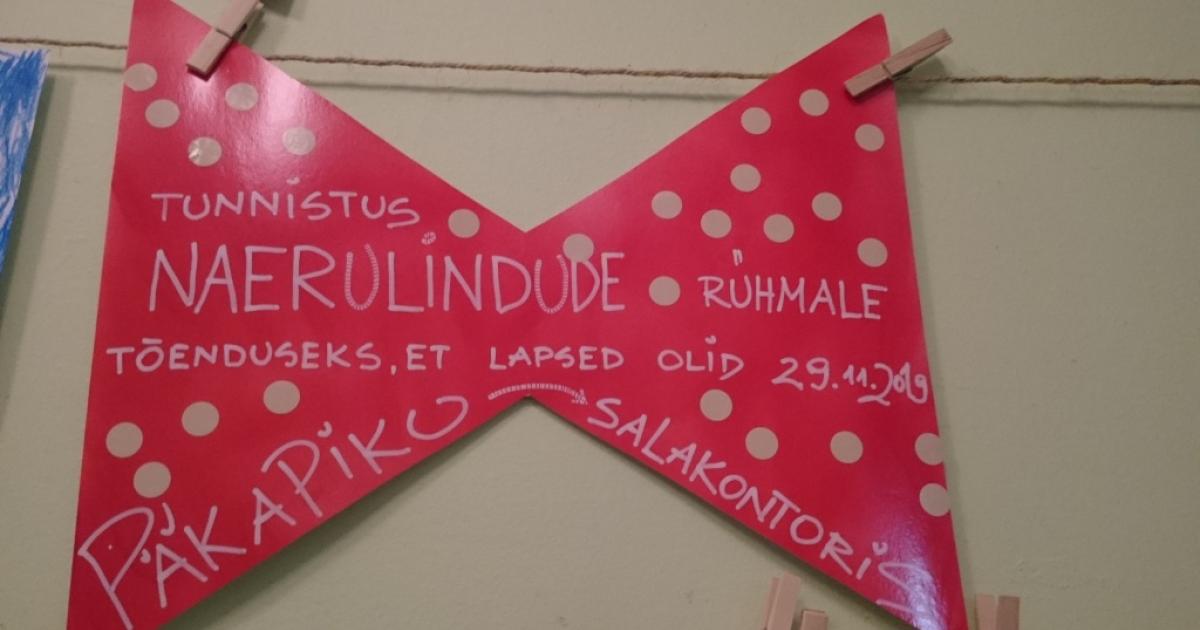 TUNNISTUS
NAERULINDUDE RÜHMALE
TÕENDUSEKS, ET LAPSED OLID 29.11.2019
PÄKAPIKU SALAKONTORIS